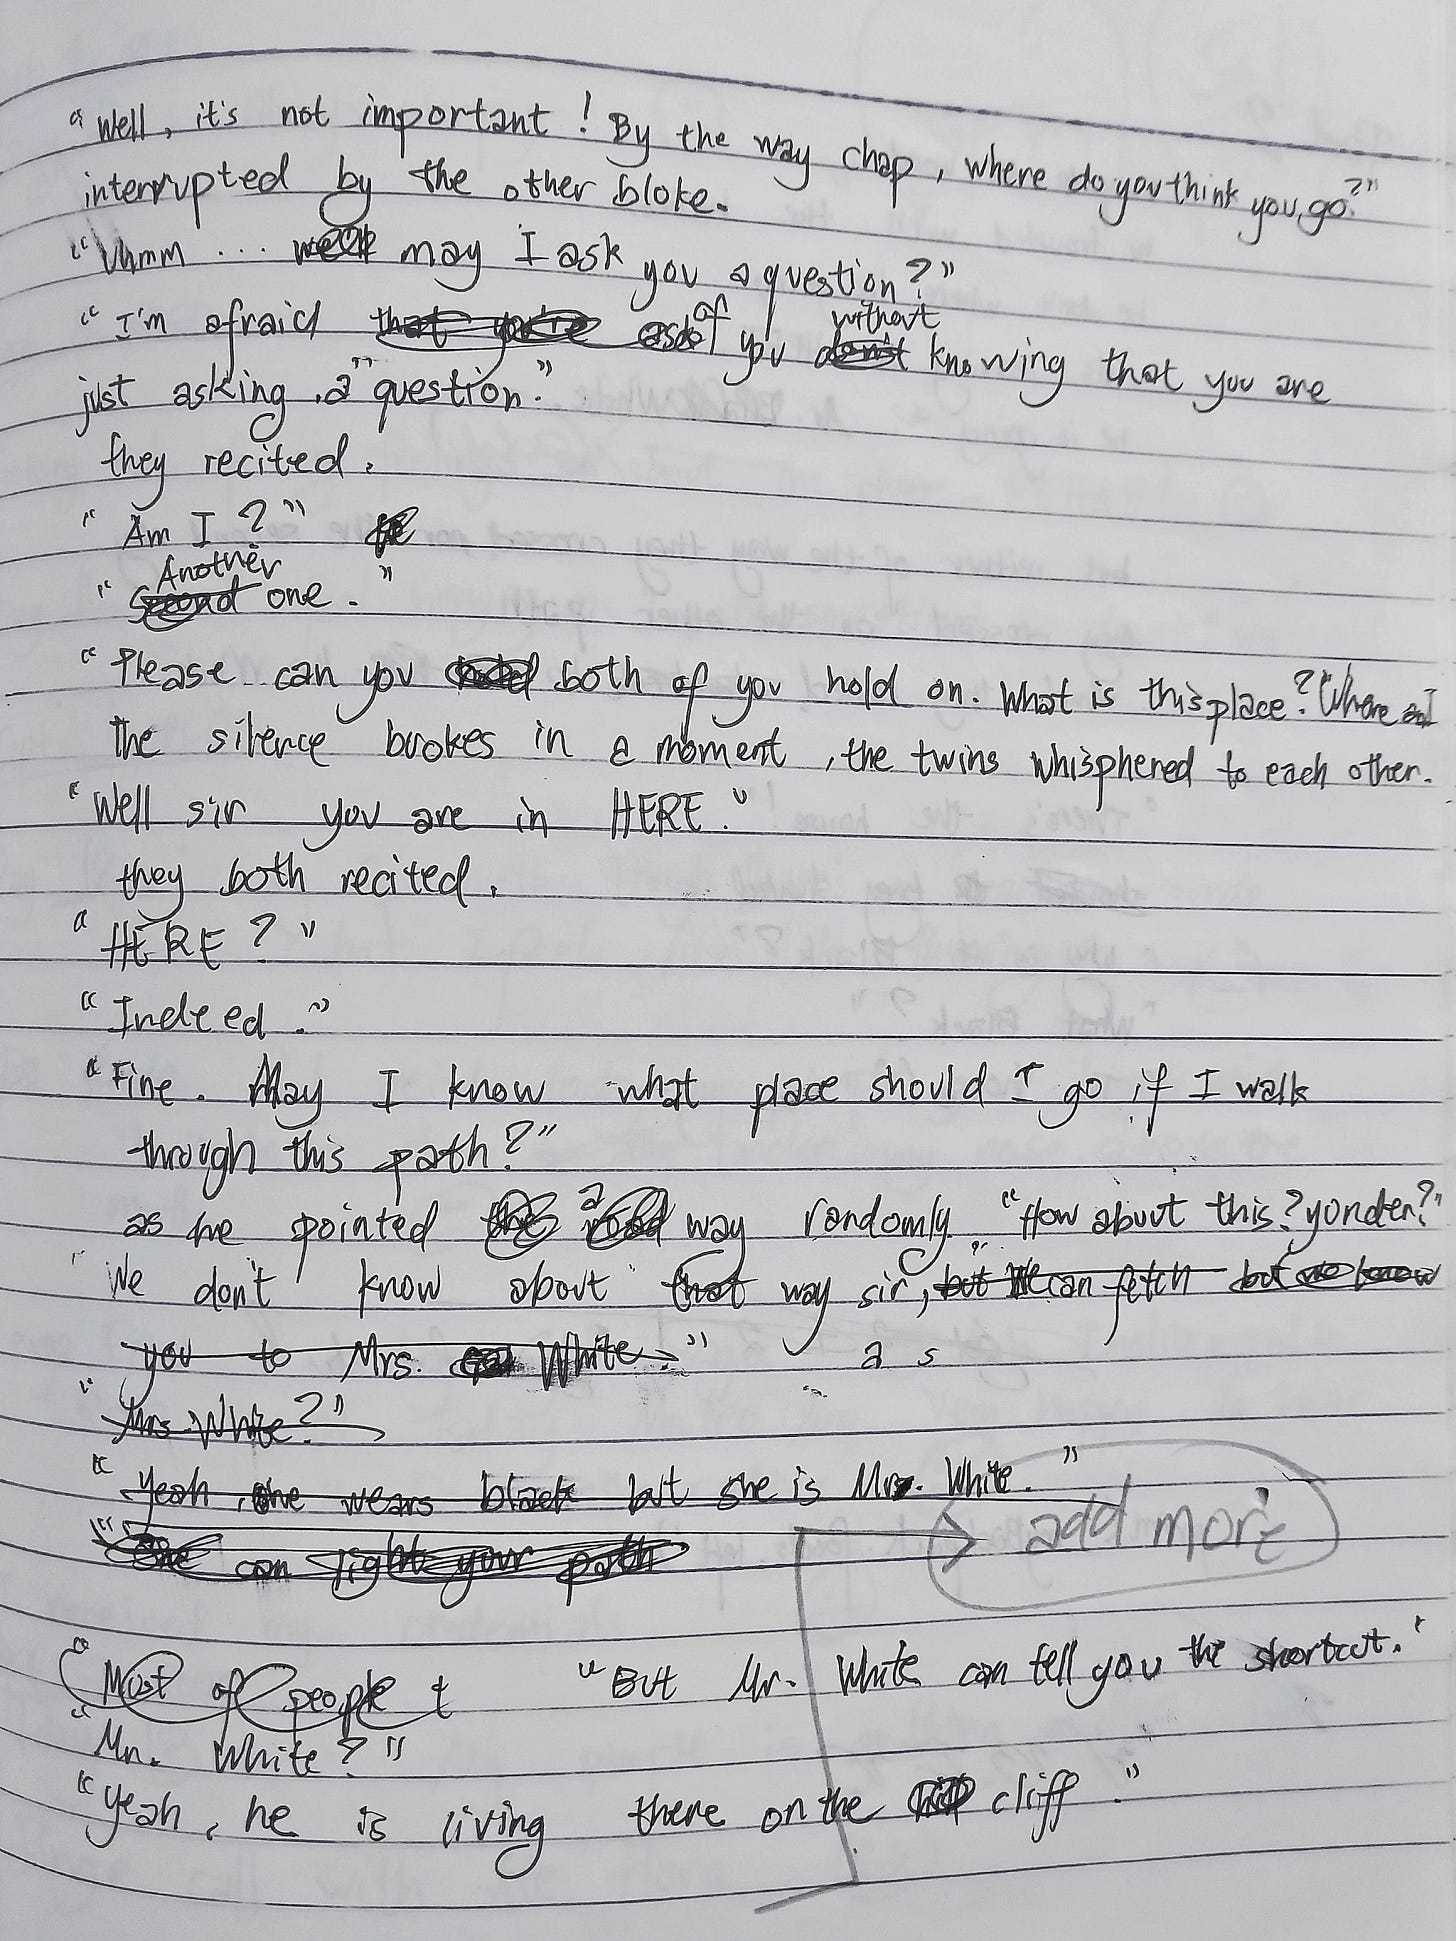 "Well, it's not important! By the way chap, where do you think you, go?"
interrupted by the other bloke.
"Uhmm ... may I ask you a question?"
"I'm afraid of you without knowing that you are
just asking a "question."
they recited.
"Am I?"
"Another one."
"Please can you both of you hold on. What is this place? Where
The silence brokes in a moment, the twins whisphered to each other.
"Well sir you are in HERE."
they both recited.
"HERE?"
"Indeed."
"Fine. May I know what place should I go if I walk
through this path?"
as he pointed a way randomly. "How about this? yonder?"
"We don't know about that way sir," but We can fetch but we know
you to Mrs. White."
a s
"Mrs White?"
"Yeah, she wears black but she is Mrs. White."
"She can light your path
add more
"Most of people t "But Mr. White can tell you the shortcut."
"Mr. White?"
"Yeah, he is living there on the cliff."